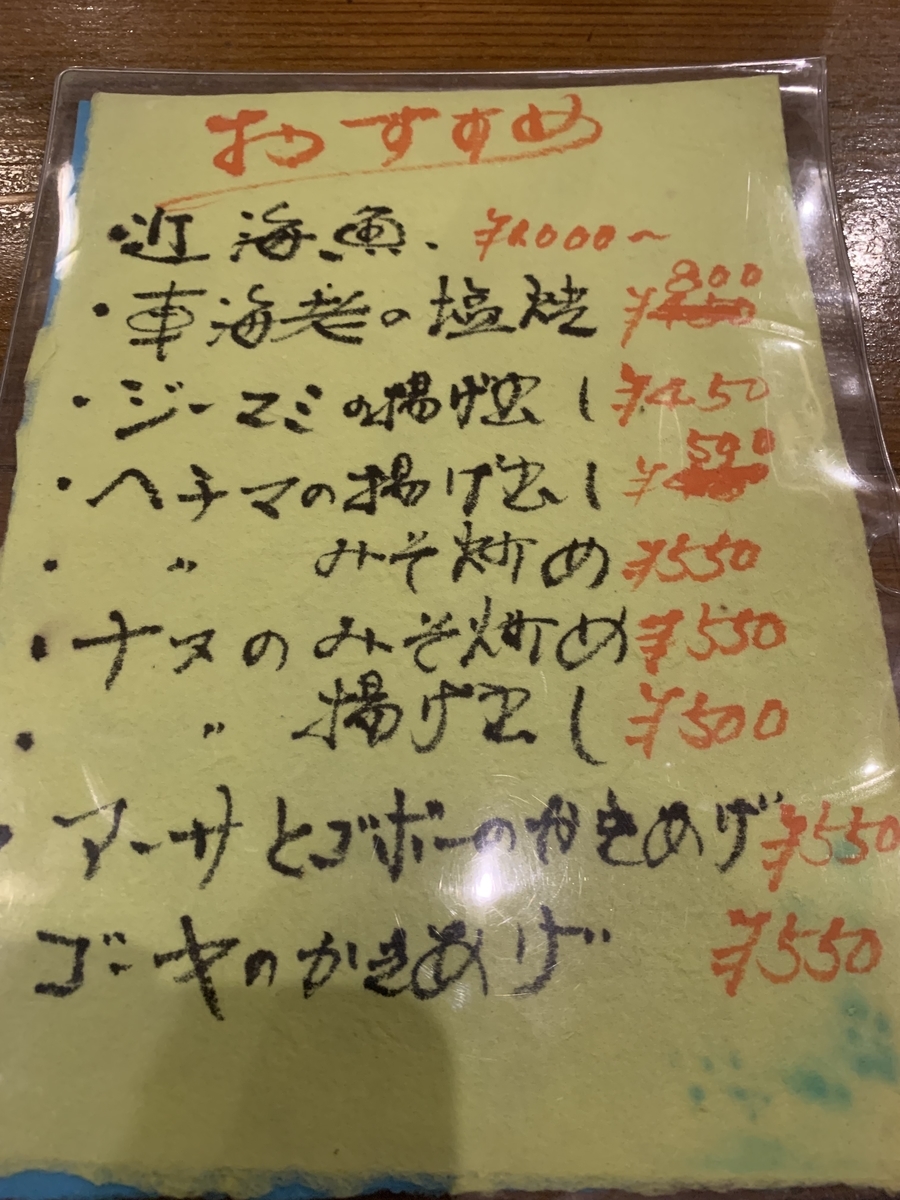 おすすめ
・近海魚、 ¥1000～
・車海老の塩焼 ¥800
・ジーマミの揚げ出し ¥450
・ヘチマの揚げ出し ¥500
・ 〃 みそ炒め ¥550
・ナスのみそ炒め ¥550
・ 〃 揚げ出し ¥500
・アーサとゴボーのかきあげ ¥550
ゴーヤのかきあげ ¥550